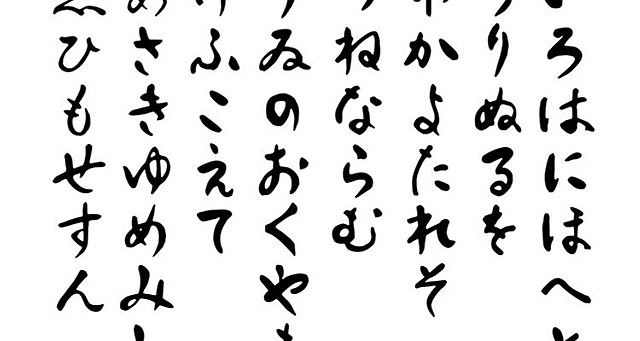 ろはにほへ
りぬるを
かよたれそ
ねならむ
ゐのおくや
ふこえて
さきゆめみ
ひもせすん